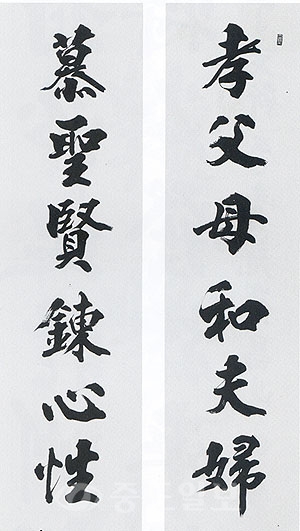 孝父母和夫婦
慕聖賢鍊心性